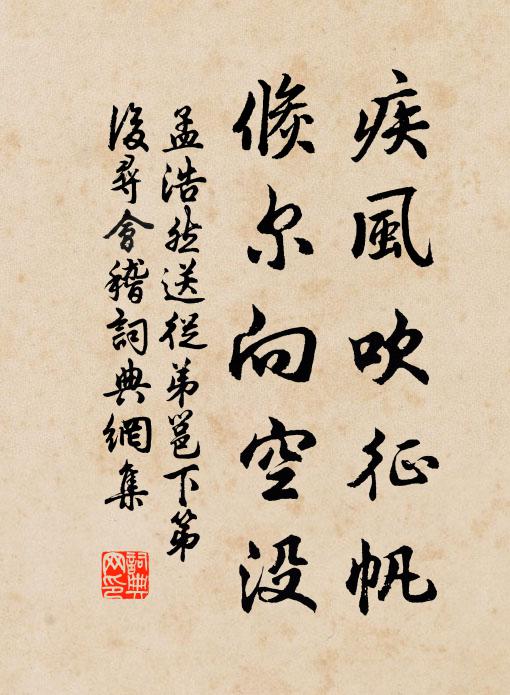 疾風吹征帆
倏尔向空没
孟浩然送從弟邕下第
後尋會稽詞典網集
詞典网印